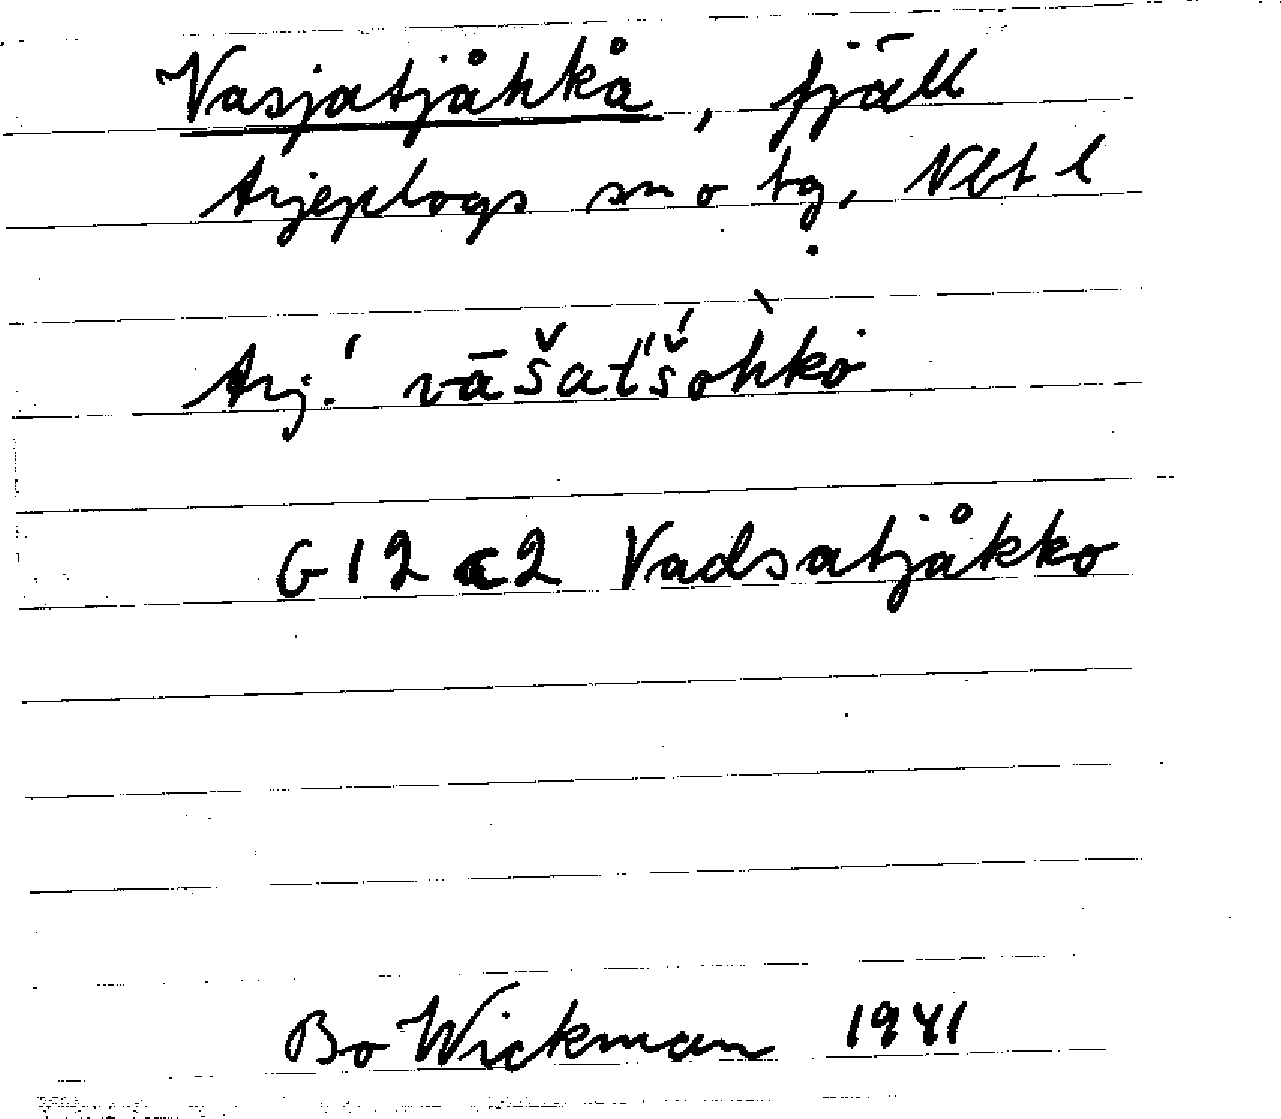 Vasjatjåhkå, fjäll
Arjeplogs sn o tg, Nbt l
Arj. ́vāšat́'šòhkȯ
G 12 c 2 Vadsatjåkko
Bo Wickman 1941